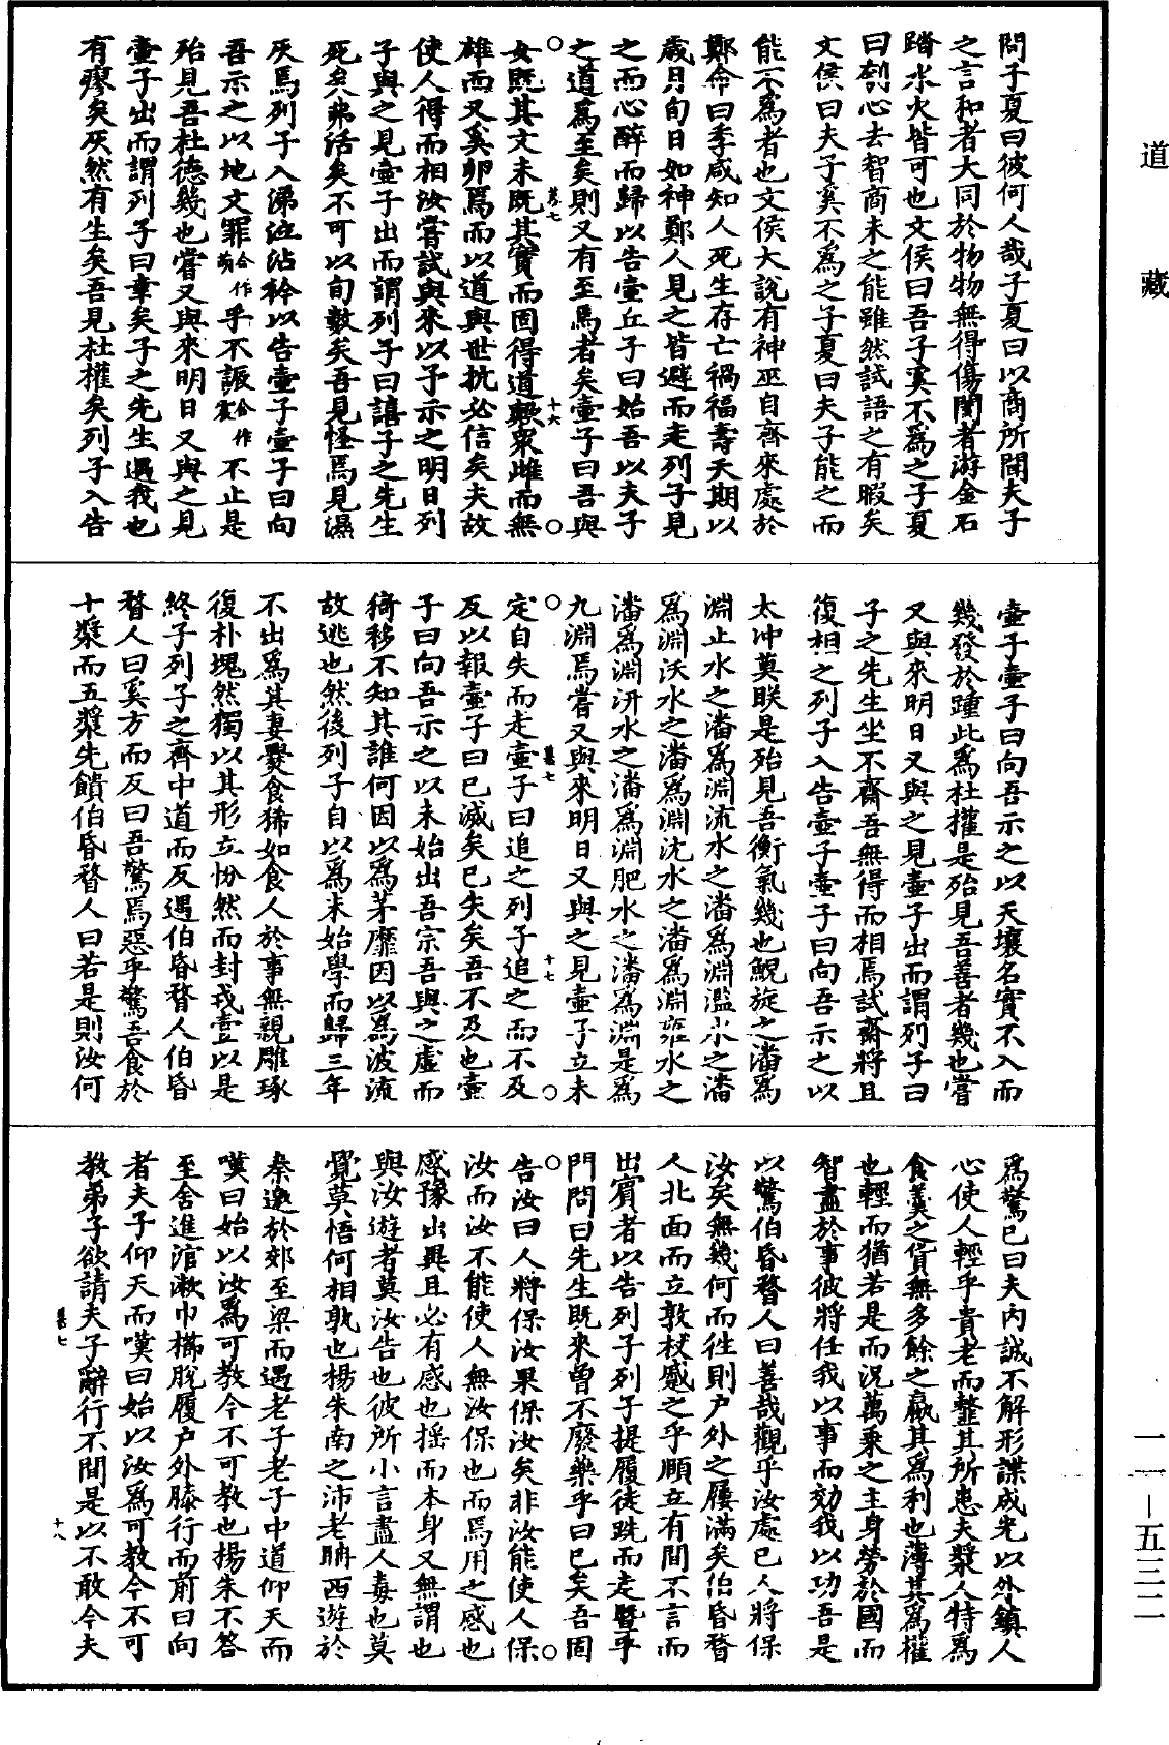 道藏
問子夏曰彼何人哉子夏曰以商所聞夫子
之言和者大同於物物無得傷閡者游金石
踏水火皆可也文侯曰吾子奚不為之子夏
曰刳心去智商未之能雖然試語之有暇矣
文侯曰夫子奚不為之子夏曰夫子能之而
能不為者也文侯大說有神巫自齊來處於
鄭命曰季咸知人死生存亡禍福壽夭期以
歲月旬日如神鄭人見之皆避而走列子見
之而心醉而歸以告壺丘子曰始吾以夫子
之道為至矣則又有至焉者矣壺子曰吾與
○ 卷七 十六 ○
女既其文未既其實而固得道歟衆雌而無
雄而又奚卵焉而以道與世抗必信矣夫故
使人得而相汝嘗試與來以予示之明日列
子與之見壺子出而謂列子曰譆子之先生
死矣弗活矣不可以旬數矣吾見怪焉見濕
灰焉列子入涕泣沾衿以告壺子壺子曰向
吾示之以地文罪合作萌乎不誫合作震不止是
殆見吾杜德幾也嘗又與來明日又與之見
壺子出而謂列子曰幸矣子之先生遇我也
有瘳矣灰然有生矣吾見杜權矣列子入告
壺子壺子曰向吾示之以天壤名實不入而
幾發於踵此為杜權是殆見吾善者幾也嘗
又與來明日又與之見壺子出而謂列子曰
子之先生坐不齋吾無得而相焉試齋將且
復相之列子入告壺子壺子曰向吾示之以
太沖莫眹是殆見吾衡氣幾也鯢旋之潘為
淵止水之潘為淵流水之潘為淵濫水之潘
為淵沃水之潘為淵氿水之潘為淵雍水之
潘為淵汧水之潘為淵肥水之潘為淵是為
九淵焉嘗又與來明日又與之見壺子立未
○ 卷七 十七 ○
定自失而走壺子曰追之列子追之而不及
反以報壺子曰已滅矣已失矣吾不及也壺
子曰向吾示之以未始出吾宗吾與之虛而
猗移不知其誰何因以為茅靡因以為波流
故逃也然後列子自以為未始學而歸三年
不出為其妻爨食狶如食人於事無親雕琢
復朴塊然獨以其形立份然而封戎壹以是
終子列子之齊中道而反遇伯昏瞀人伯昏
瞀人曰奚方而反曰吾驚焉惡乎驚吾食於
十漿而五漿先饋伯昏瞀人曰若是則汝何
為驚已曰夫內誠不解形諜成光以外鎮人
心使人輕乎貴老而䪠其所患夫漿人特為
食羹之貨無多餘之贏其為利也薄其為權
也輕而猶若是而況萬乘之主身勞於國而
智盡於事彼將任我以事而効我以功吾是
以驚伯昏瞀人曰善哉觀乎汝處已人將保
汝矣無幾何而往則户外之屨滿矣伯昏瞀
人北面而立敦杖蹙之乎順立有間不言而
出賓者以告列子列子提履徒跣而走暨乎
門問曰先生既來曾不廢藥乎曰已矣吾固
○ ○
告汝曰人將保汝果保汝矣非汝能使人保
汝而汝不能使人無汝保也而焉用之感也
感豫出異且必有感也搖而本身又無謂也
與汝遊者莫汝告也彼所小言盡人毒也莫
覺莫悟何相孰也楊朱南之沛老聃西遊於
秦邀於郊至梁而遇老子老子中道仰天而
嘆曰始以汝為可教今不可教也楊朱不答
至舍進涫漱巾櫛脫履户外膝行而前曰向
者夫子仰天而嘆曰始以汝為可教今不可
教弟子欲請夫子辭行不間是以不敢今夫
卷七 十八
一一—五三二